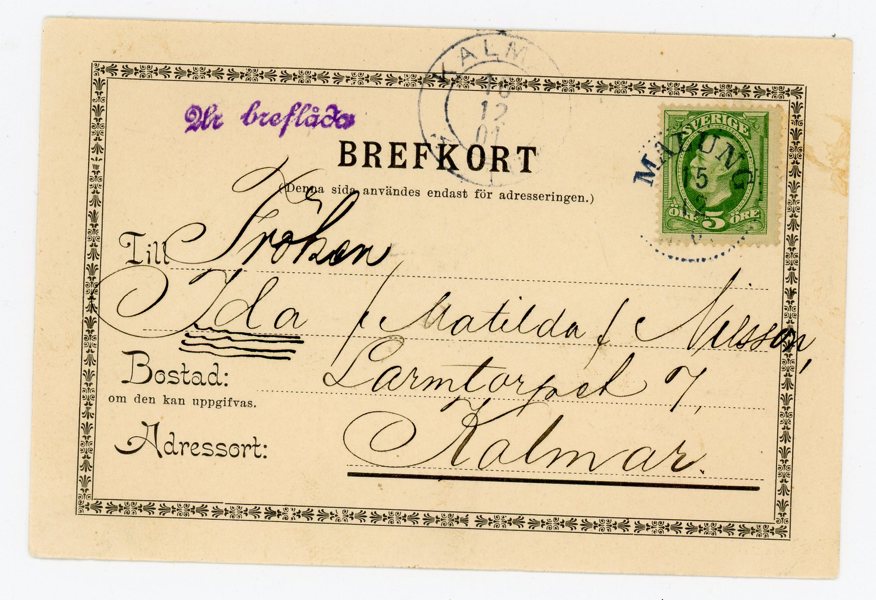 KALM
12
01
Ur breflåda
BREFKORT
(Denna sida användes endast för adresseringen.)
SVERIGE
MALUNG
15
ÖRE 5 ÖRE
Till Fröken
Ida / Matilda / Nilsson,
Bostad: Larmtorget 7,
om den kan uppgifvas.
Adressort: Kalmar.